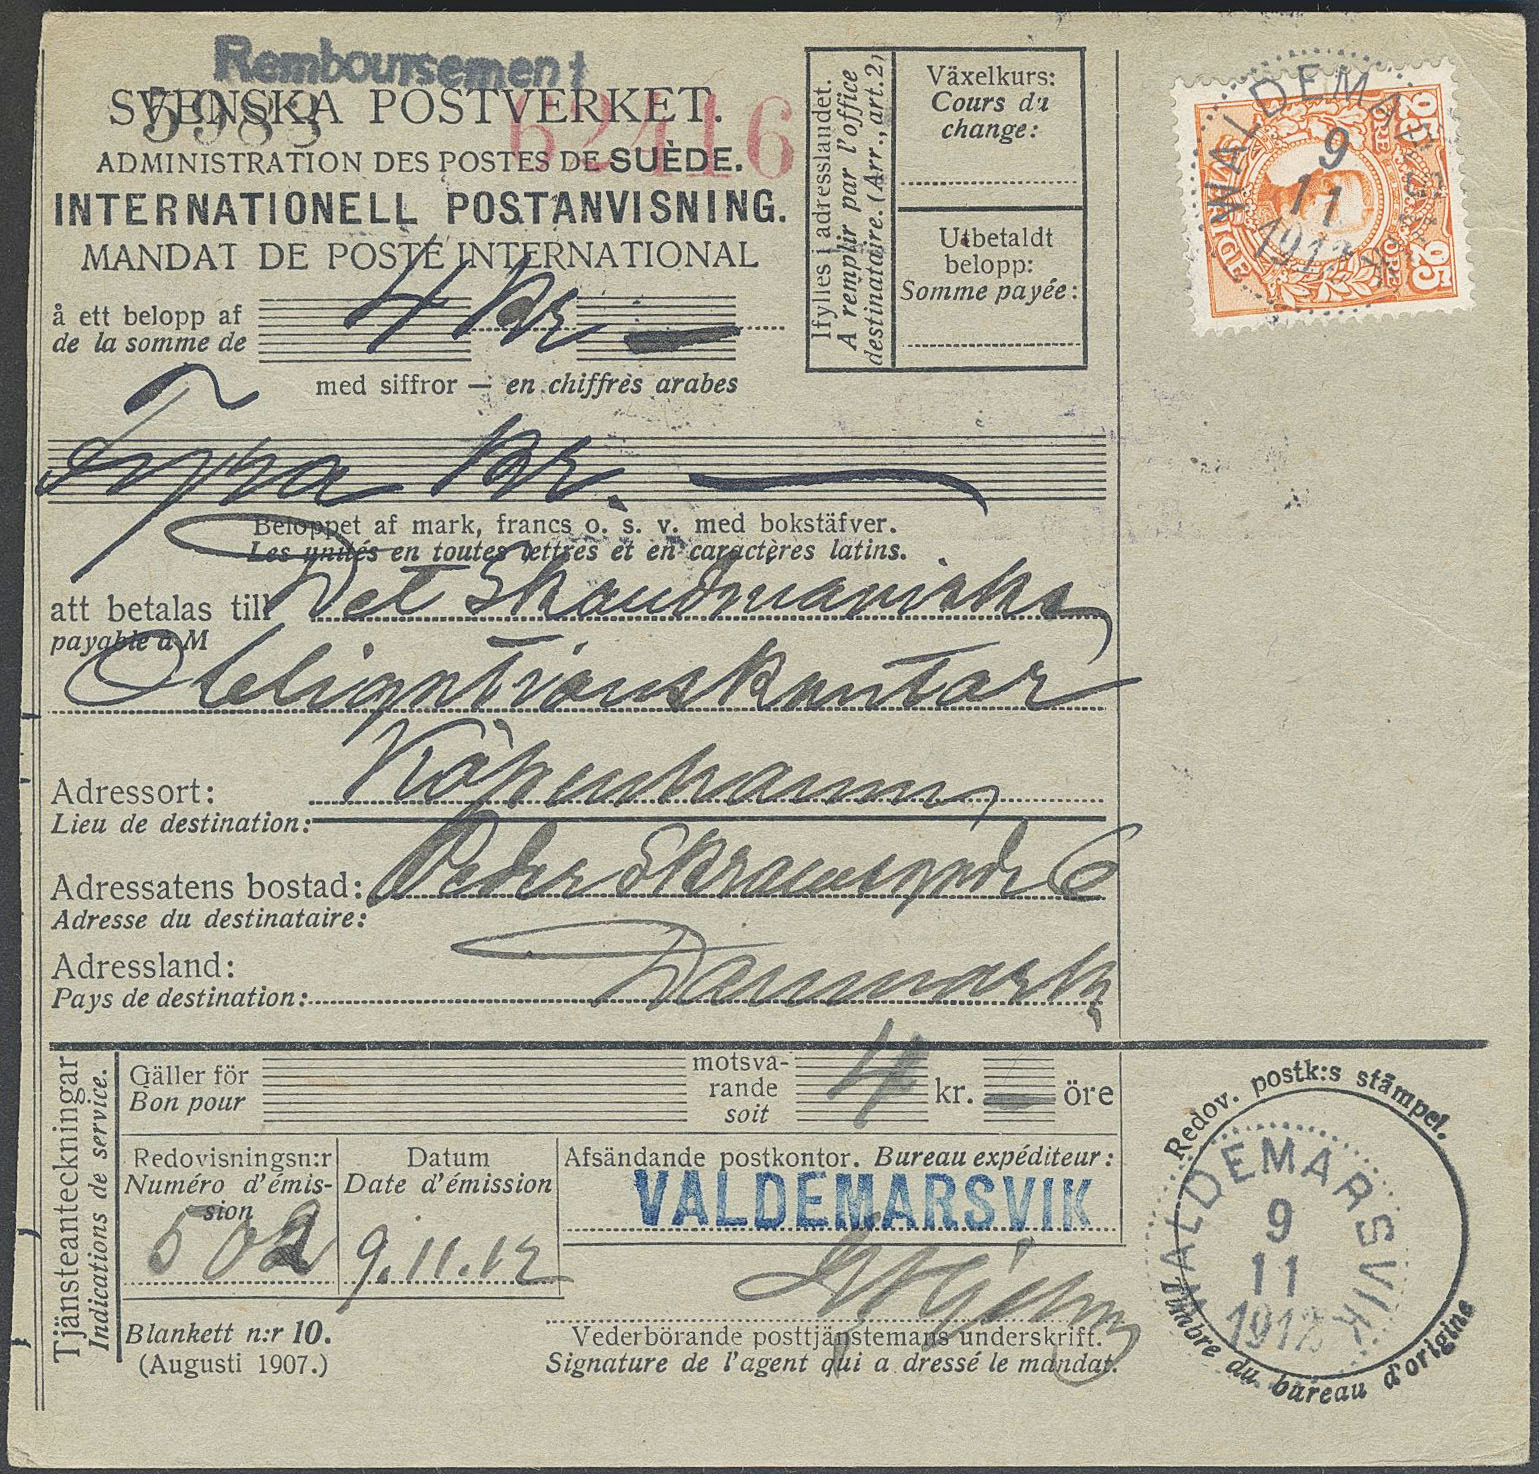 Remboursement
5983
62416
SVENSKA POSTVERKET.
ADMINISTRATION DES POSTES DE SUÈDE.
INTERNATIONELL POSTANVISNING.
MANDAT DE POSTE INTERNATIONAL
å ett belopp af
de la somme de
4 Kr
med siffror — en chiffres arabes
Ifylles i adresslandet.
A remplir par l'office
destinataire. (Arr., art. 2)
Växelkurs:
Cours du
change:
Utbetaldt
belopp:
Somme payée:
WALDEMARSVIK
9
11
1912
25 ÖRE
25 ÖRE
SVERIGE
Fyra Kr.
Beloppet af mark, francs o. s. v. med bokstäfver.
Les unités en toutes lettres et en caractères latins.
att betalas till Det Skandinaviska
payable à M
Obligationskontor
Adressort: Köpenhamn
Lieu de destination:
Adressatens bostad: Peder Skramsgade 6
Adresse du destinataire:
Adressland: Danmark
Pays de destination:
Tjänsteanteckningar
Indications de service.
Gäller för
Bon pour
motsva-
rande
soit
4 kr. — öre
Redovisningsn:r
Numéro d'émis-
sion
502
Datum
Date d'émission
9.11.12
Afsändande postkontor. Bureau expéditeur:
VALDEMARSVIK
Vederbörande posttjänstemans underskrift.
Signature de l'agent qui a dressé le mandat.
Blankett n:r 10.
(Augusti 1907.)
Redov. postk:s stämpel.
WALDEMARSVIK
9
11
1912
Timbre du bureau d'origine